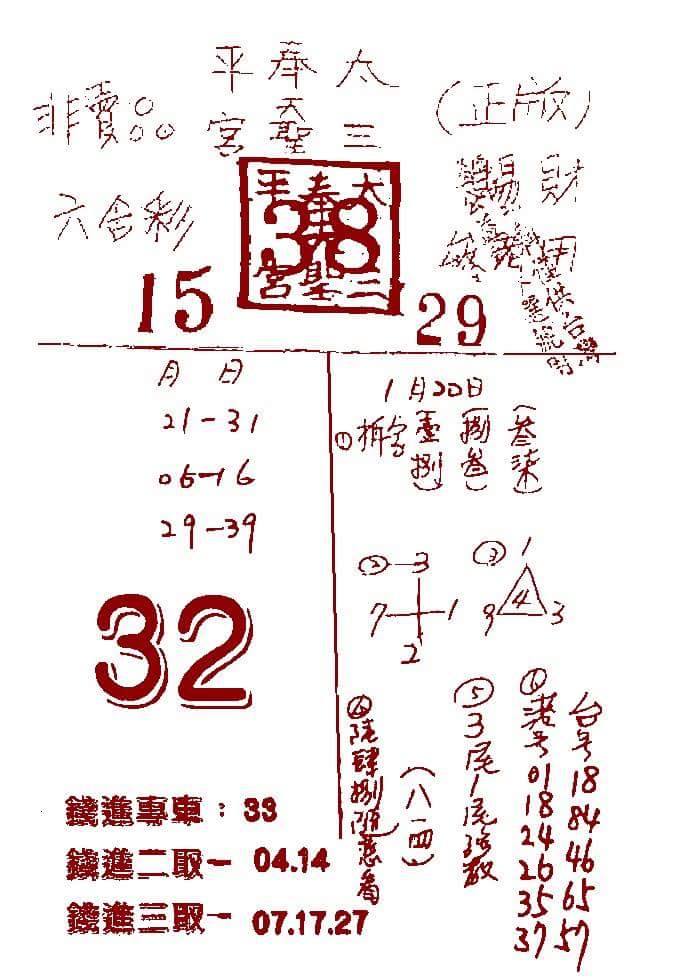 太奉平
三天聖宮
非賣品
(正版)
六合彩
太奉平
38
三天聖宮
財
15
29
月 日
21-31
06-16
29-39
32
1月20日
① 拆字 (壹捌) (捌叁) (叁柒)
② 3
7 1
2
③ 1
4
9 3
④ 陸肆捌隨意看
(八一四)
⑤ 3尾1尾
⑥ 港号 01 18 24 26 35 37
台号 18 84 46 65 57
錢進專車：33
錢進二取一 04.14
錢進三取一 07.17.27